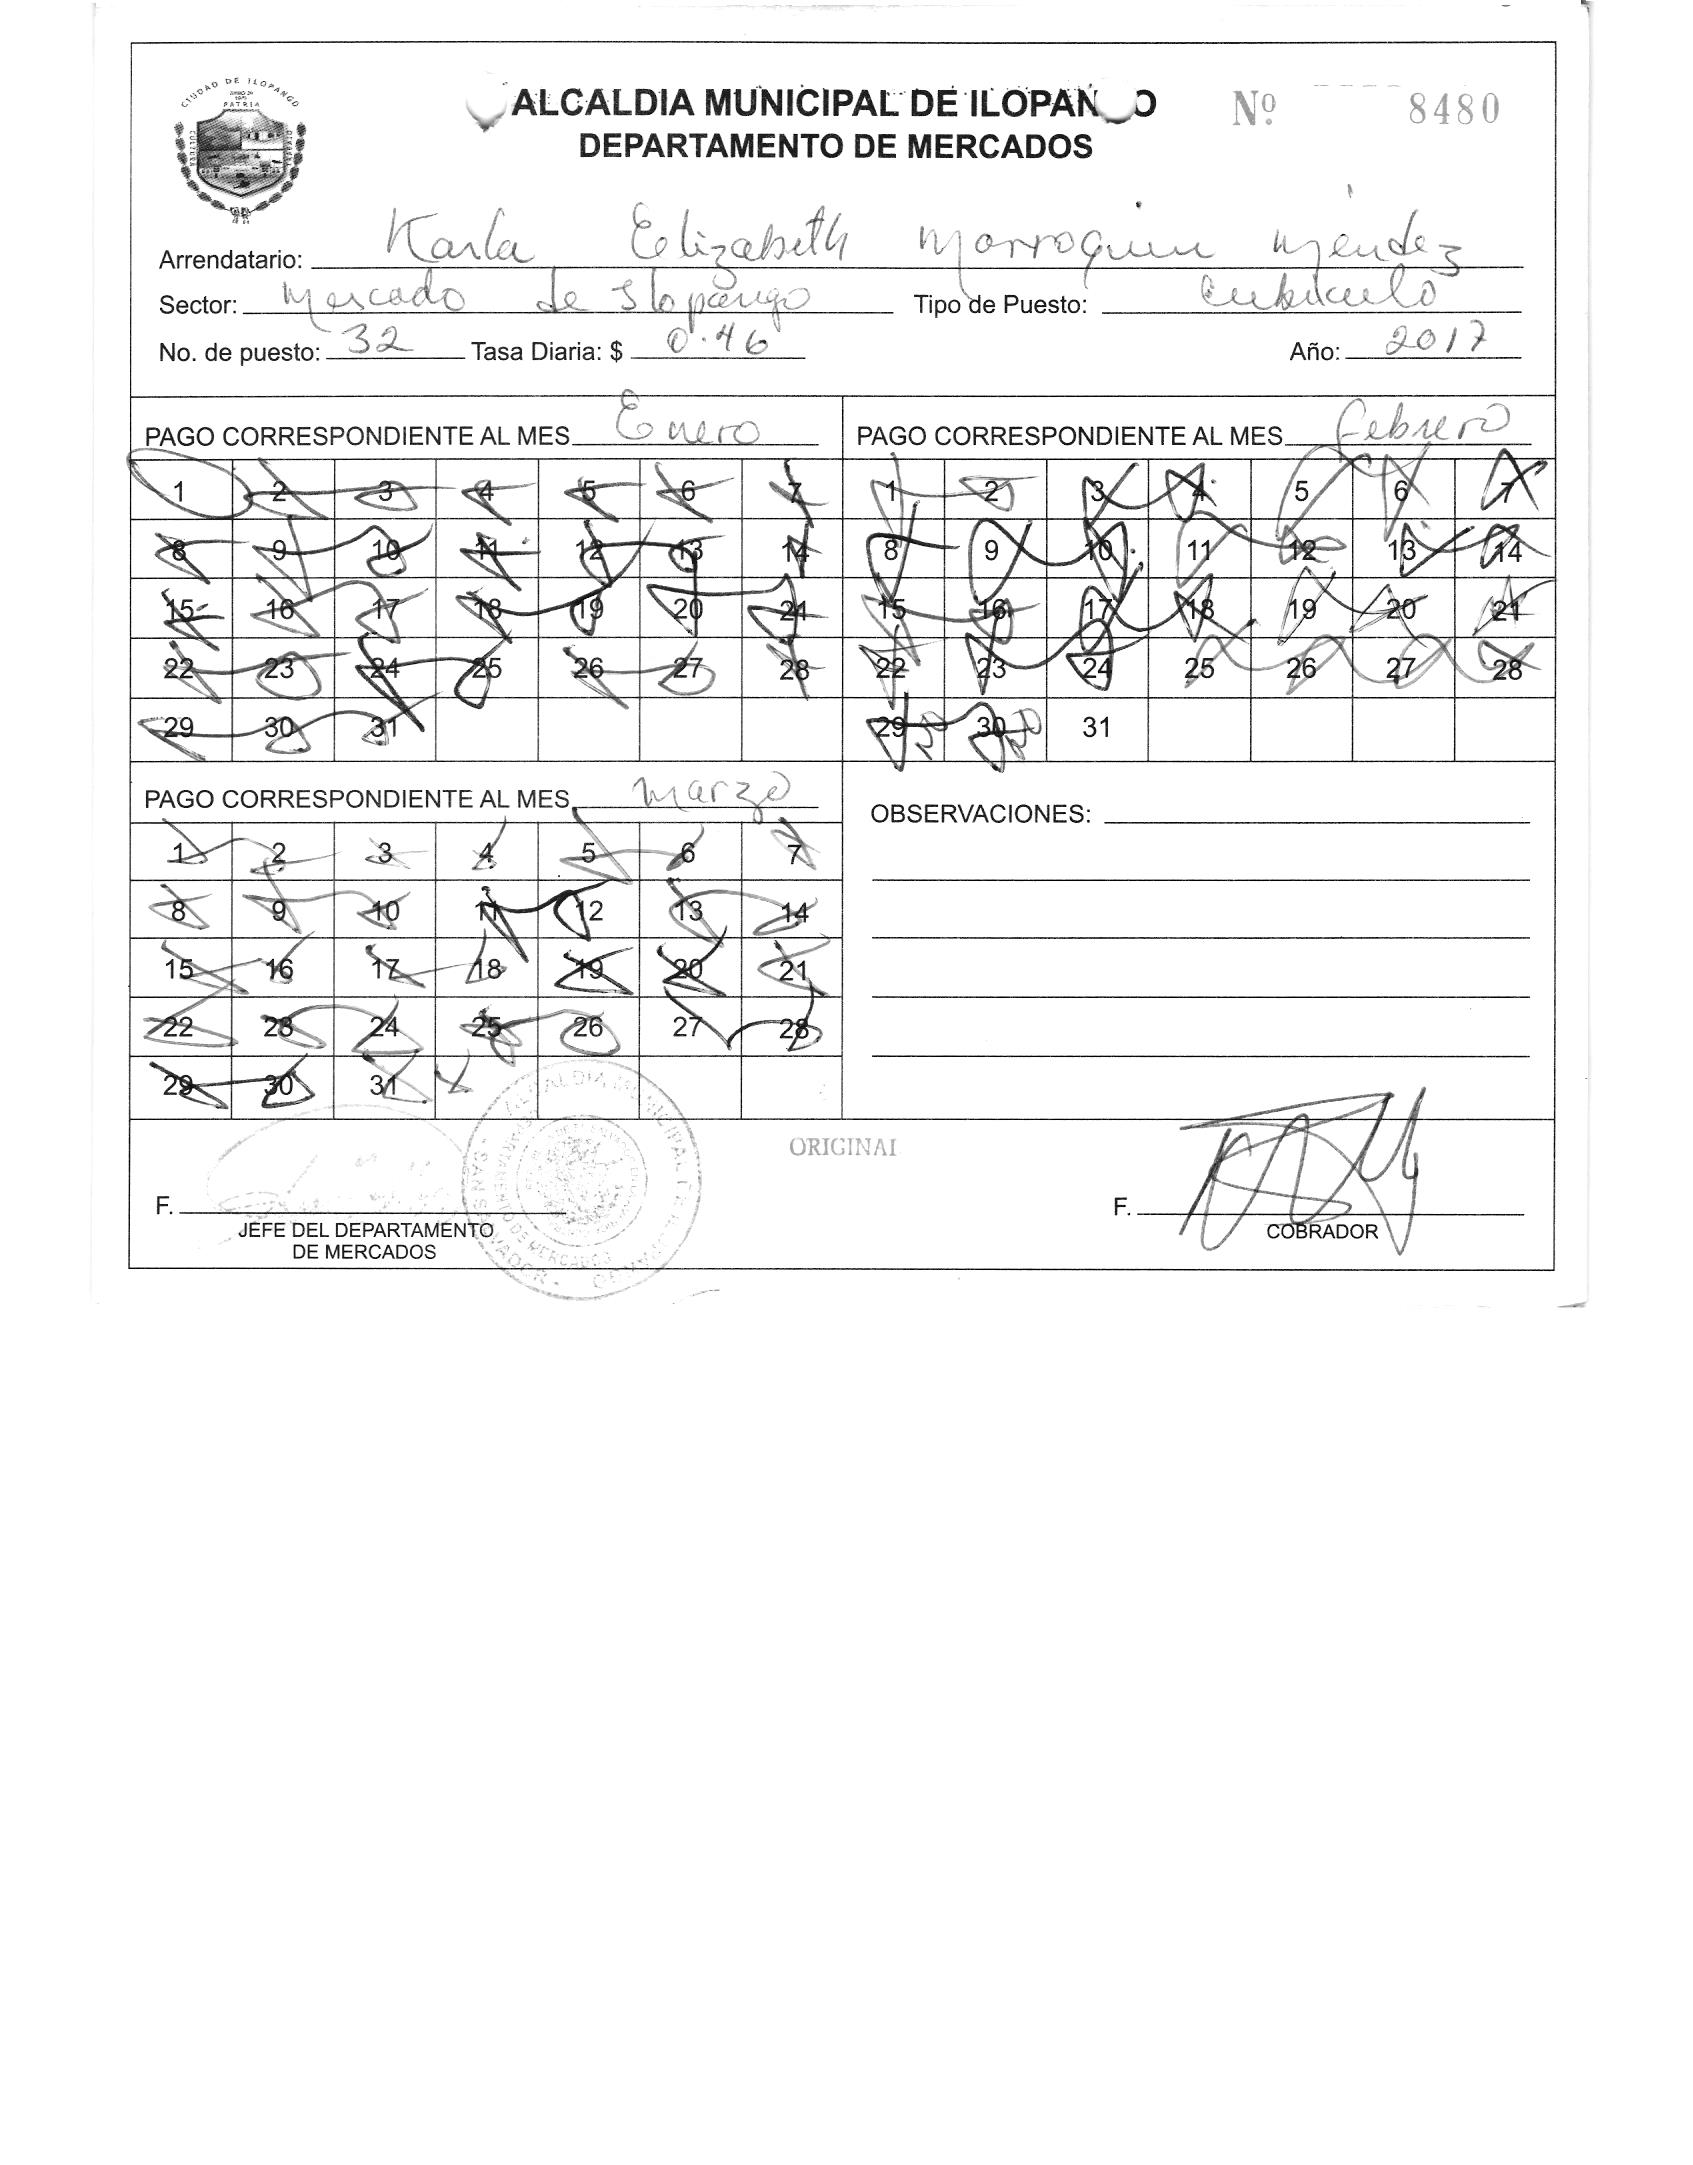 CIUDAD DE ILOPANGO
PATRIA
ALCALDIA MUNICIPAL DE ILOPAN O
DEPARTAMENTO DE MERCADOS
Nº 8480
Arrendatario: Karla Elizabeth Marroquin Méndez
Sector: Mercado de Ilopango Tipo de Puesto: Cubiculo
No. de puesto: 32 Tasa Diaria: $ 0.46 Año: 2017
PAGO CORRESPONDIENTE AL MES Enero
1 2 3 4 5 6 7
8 9 10 11 12 13 14
15 16 17 18 19 20 21
22 23 24 25 26 27 28
29 30 31
PAGO CORRESPONDIENTE AL MES Febrero
1 2 3 4 5 6 7
8 9 10 11 12 13 14
15 16 17 18 19 20 21
22 23 24 25 26 27 28
29 30 31
PAGO CORRESPONDIENTE AL MES Marzo
1 2 3 4 5 6 7
8 9 10 11 12 13 14
15 16 17 18 19 20 21
22 23 24 25 26 27 28
29 30 31
OBSERVACIONES:
ORIGINAL
F.
JEFE DEL DEPARTAMENTO
DE MERCADOS
F.
COBRADOR